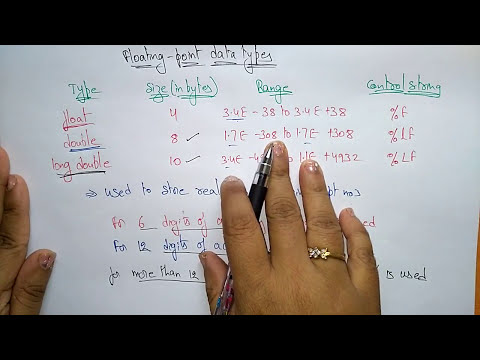 Floating-point data types
Type Size (in bytes) Range Control string
float 4 3.4E - 38 to 3.4E + 38 %f
double 8 1.7E - 308 to 1.7E + 308 %lf
long double 10 3.4E -4 to 1.1E + 4932 %Lf
⇒ used to store real nos
For 6 digits of a used
For 12 digits of a
for more than 12 is used